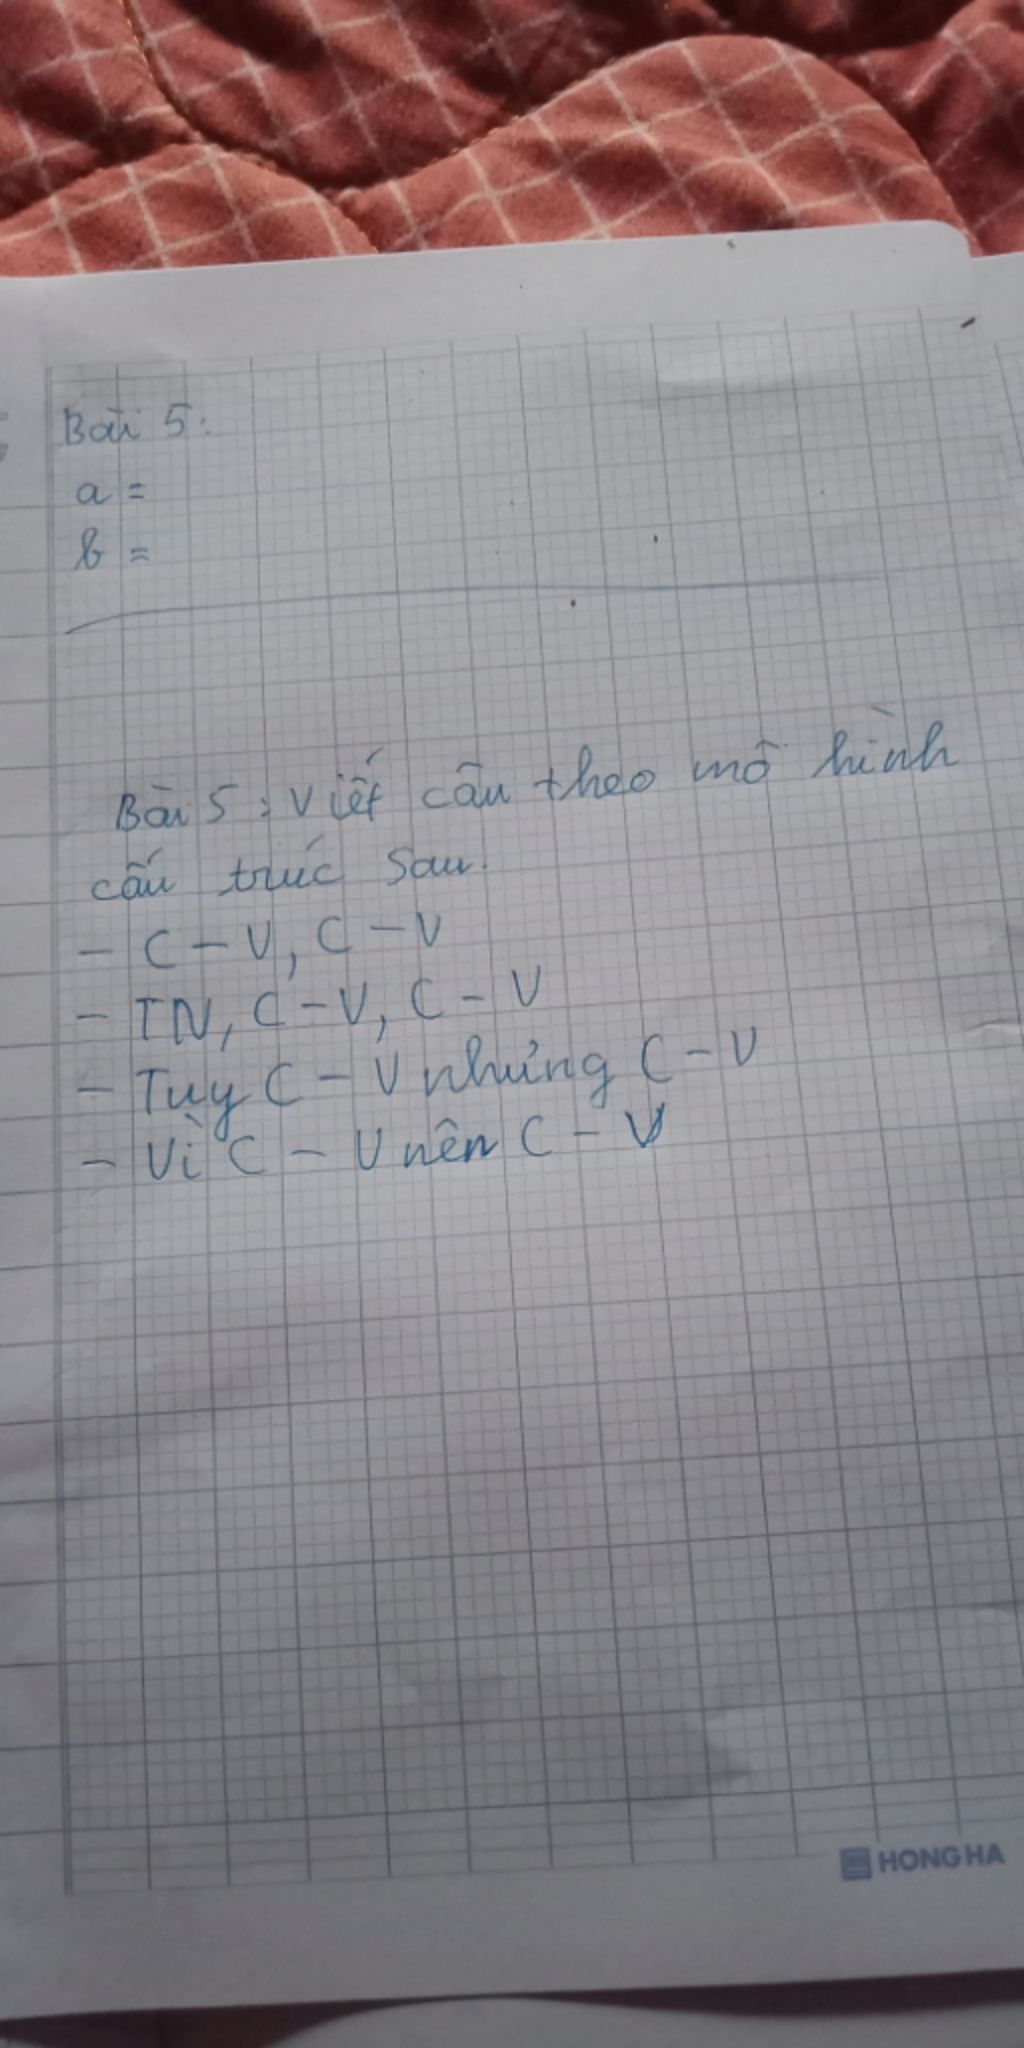 Bài 5:
a =
b =
Bài 5: Viết câu theo mô hình
cấu trúc sau.
- C - V, C - V
- TN, C - V, C - V
- Tuy C - V nhưng C - V
- Vì C - V nên C - V
HONG HA